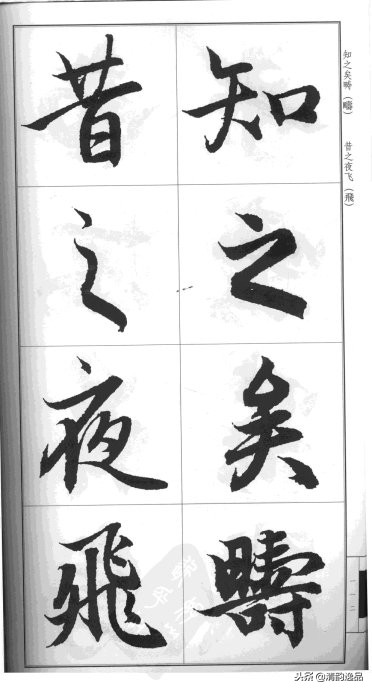 知之矣疇
昔之夜飛
知之矣畴（疇） 昔之夜飞（飛）
一一二
头条@清韵逸品